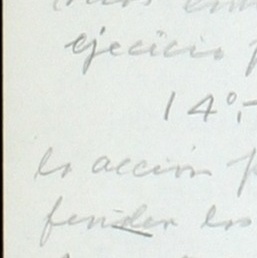 ejecicio
14º.-
la acción
fender los